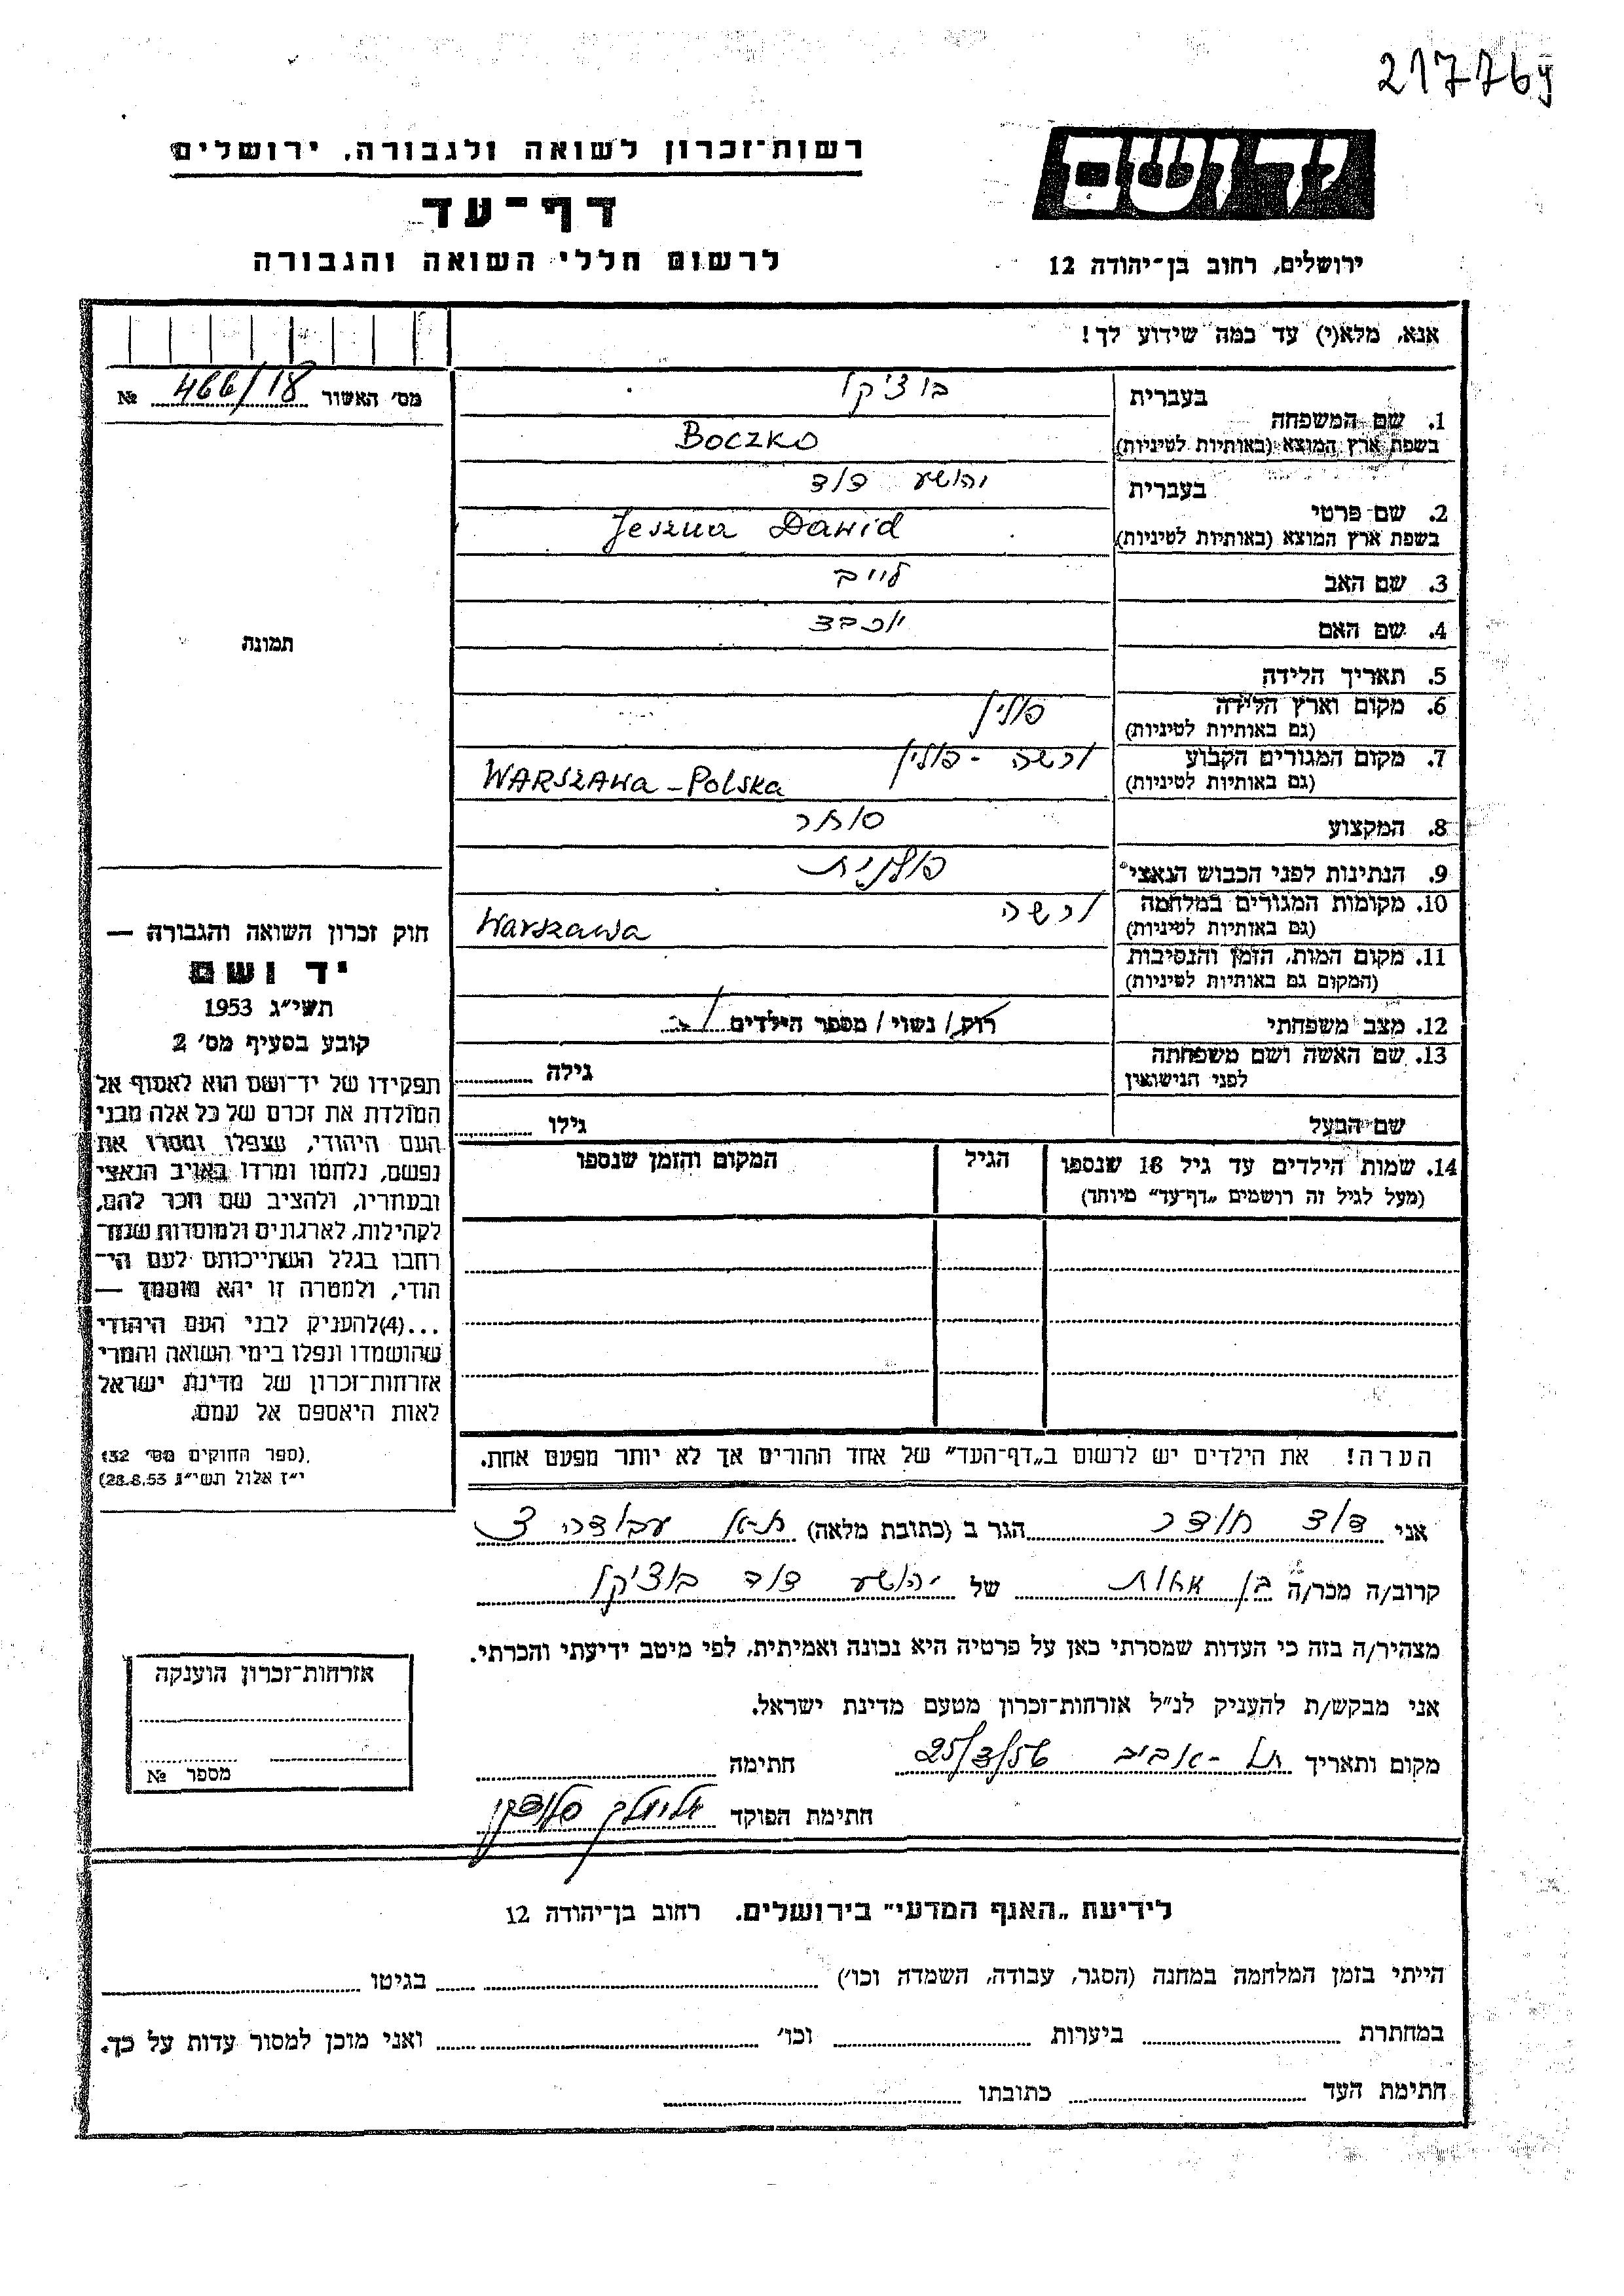 217764
רשות־זכרון לשואה ולגבורה, ירושלים
דף־עד
לרשום חללי השואה והגבורה
יד ושם
ירושלים, רחוב בן־יהודה 12
אנא, מלא(י) עד כמה שידוע לך!
מס' האשור 466/18 №
תמונה
1. שם המשפחה
בעברית
בוציקו
בשפת ארץ המוצא (באותיות לטיניות)
Boczko
2. שם פרטי
בעברית
יהושע דוד
בשפת ארץ המוצא (באותיות לטיניות)
Jeszua Dawid
3. שם האב
לייב
4. שם האם
יוכבד
5. תאריך הלידה
6. מקום וארץ הלידה
(גם באותיות לטיניות)
פולין
7. מקום המגורים הקבוע
(גם באותיות לטיניות)
ורשה - פולין
WARSZAWA - Polska
8. המקצוע
סוחר
9. הנתינות לפני הכבוש הנאצי
פולנית
10. מקומות המגורים במלחמה
(גם באותיות לטיניות)
ורשה
Warszawa
11. מקום המות, הזמן והנסיבות
(המקום גם באותיות לטיניות)
12. מצב משפחתי
רוק/ נשוי/ מספר הילדים
13. שם האשה ושם משפחתה
לפני הנישואין
גילה
שם הבעל
גילו
14. שמות הילדים עד גיל 18 שנספו
(מעל לגיל זה רושמים „דף־עד” מיוחד)
הגיל
המקום והזמן שנספו
חוק זכרון השואה והגבורה —
יד ושם
תשי״ג 1953
קובע בסעיף מס' 2
תפקידו של יד־ושם הוא לאסוף אל
המולדת את זכרם של כל אלה מבני
העם היהודי, שנפלו ומסרו את
נפשם, נלחמו ומרדו באויב הנאצי
ובעוזריו, ולהציב שם וזכר להם,
לקהילות, לארגונים ולמוסדות שנח־
רבו בגלל השתייכותם לעם הי־
הודי, ולמטרה זו יהא מוסמך —
...(4) להעניק לבני העם היהודי
שהושמדו ונפלו בימי השואה והמרי
אזרחות־זכרון של מדינת ישראל
לאות היאספם אל עמם.
(ספר החוקים מס' 132,
י״ז אלול תשי״ג 28.8.53)
הערה! את הילדים יש לרשום ב„דף־העד” של אחד ההורים אך לא יותר מפעם אחת.
אני דוד חודר הגר ב (כתובת מלאה) ת-א עבודה
קרוב/ה מכר/ה בן אחות של יהושע דוד בוציקו
מצהיר/ה בזה כי העדות שמסרתי כאן על פרטיה היא נכונה ואמיתית, לפי מיטב ידיעתי והכרתי.
אני מבקש/ת להעניק לנ״ל אזרחות־זכרון מטעם מדינת ישראל.
מקום ותאריך תל-אביב 25/3/56 חתימה
חתימת הפוקד אלימלך
אזרחות־זכרון הוענקה
מספר №
לידיעת „האגף המדעי” בירושלים. רחוב בן־יהודה 12
הייתי בזמן המלחמה במחנה (הסגר, עבודה, השמדה וכו') בגיטו
במחתרת ביערות וכו' ואני מוכן למסור עדות על כך.
חתימת העד כתובתו